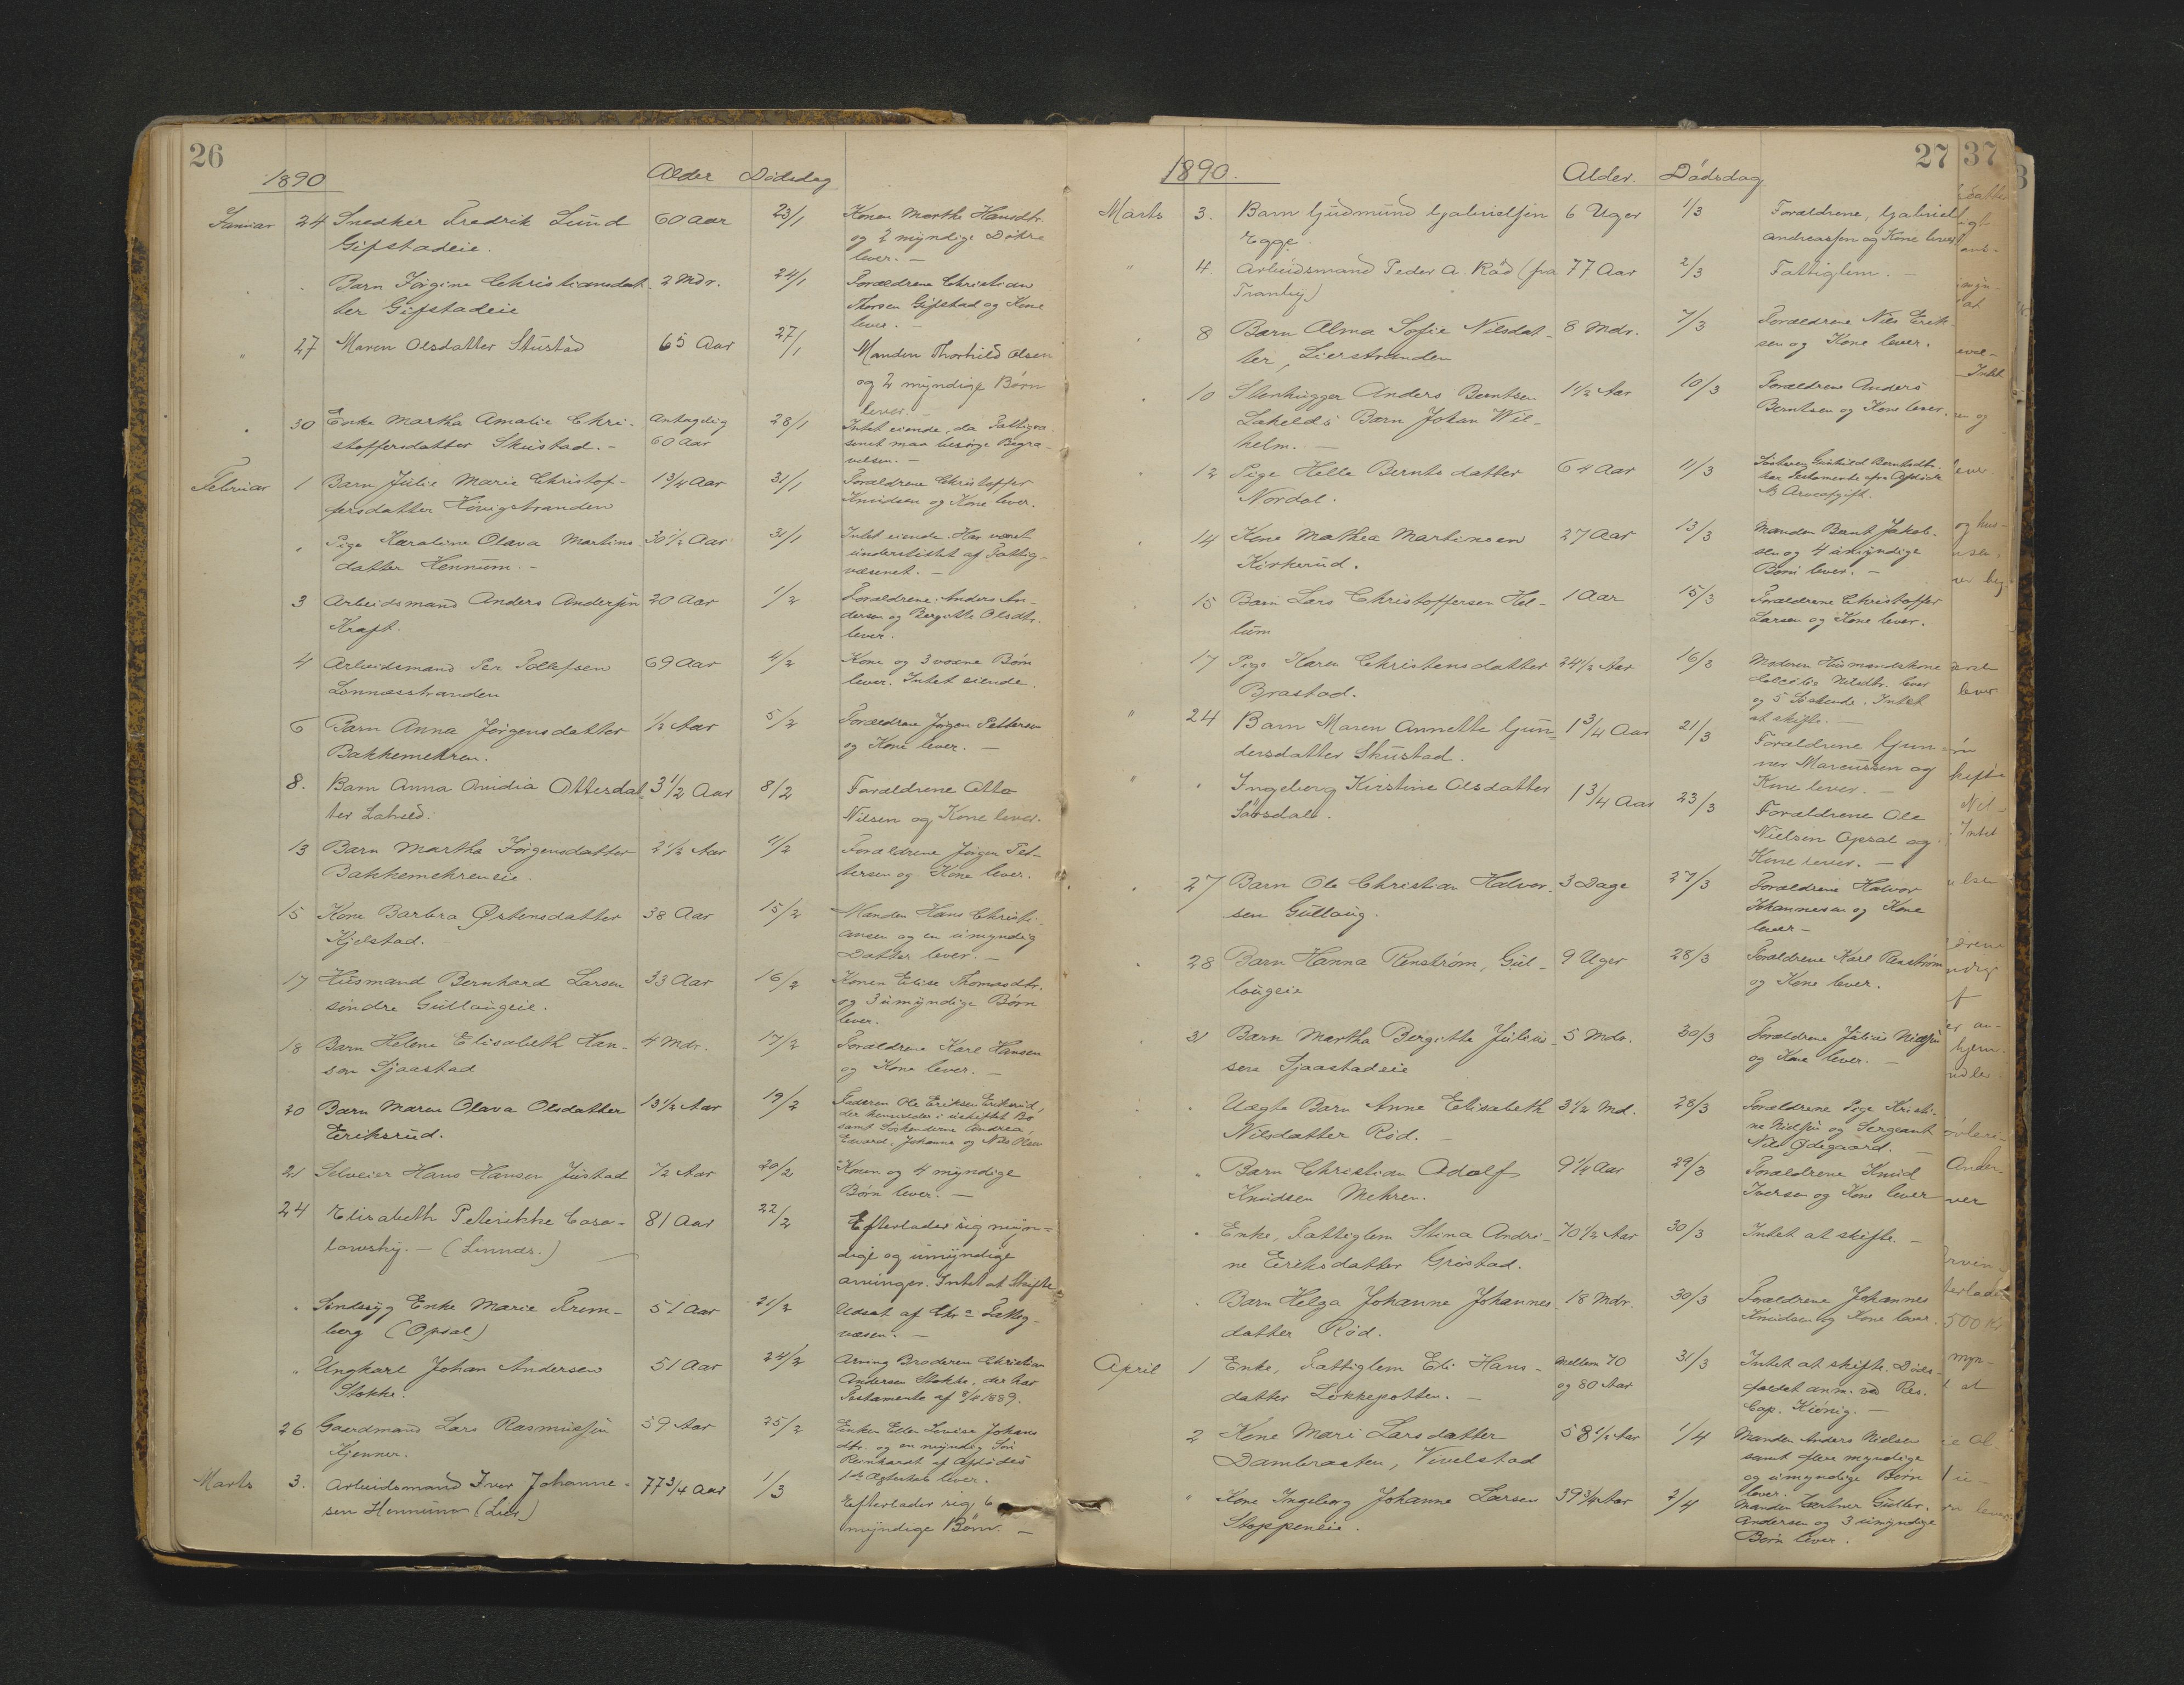 26
1890
Alder Dödsdag
Januar 24 Snedker Fredrik Lund 60 Aar 23/1 Konen Marthe Hansdtr.
Gifstadeie. og 2 myndige Døtre
lever. —
Barn Jörgine Christiansdat- 2 Mdr. 24/1 Forældrene Christian
ter Gifstadeie Thorsen Gifstad og Kone
lever. —
" 27 Maren Olsdatter Stustad 65 Aar 27/1 Manden Thorkild Olsen
og 2 myndige Börn
lever. —
30 Enke Martha Amalie Chri- Antagelig 28/1 Intet eiende, da Fattigvæ-
stoffersdatter Skustad. — 60 Aar senet maa besörge Begra-
velsen. —
Februar 1 Barn Julie Marie Christof- 1 3/4 Aar 31/1 Forældrene Christoffer
fersdatter Hönigstranden Knudsen og Kone lever.
Pige Karoline Olava Martins- 30 1/2 Aar 31/1 Intet eiende. Har været
datter Hennum. — understöttet af Fattig-
væsenet. —
3 Arbeidsmand Anders Andersen 20 Aar 1/2 Forældrene Anders An-
Kraft. dersen og Bergitte Olsdtr.
lever.
4 Arbeidsmand Per Tollefsen 69 Aar 4/2 Kone og 3 voxne Børn
Lönnesstranden lever. Intet eiende.
6 Barn Anna Jörgensdatter 1/2 Aar 5/2 Forældrene Jörgen Pettersen
Bakkemehren. og Kone lever. —
8. Barn Anna Ovidia Ottesdat- 3 1/2 Aar 8/2 Forældrene Otto
ter Lahell. Nilsen og Kone lever.
13 Barn Martha Jörgensdatter 2 1/2 Aar 11/2 Forældrene Jörgen Pet-
Bakkemehreneie. tersen og Kone lever.
15 Kone Barbra Østensdatter 38 Aar 15/2 Manden Hans Christi-
Kjelstad. ansen og en umyndig
Datter lever. —
17 Husmand Bernhard Larsen 33 Aar 16/2 Konen Elise Thomasdtr.
söndre Gullaugeie. og 3 umyndige Børn
lever.
18 Barn Helene Elisabeth Han- 4 Mdr. 17/2 Forældrene Karl Hansen
sen Sjaastad og Kone lever. —
20 Barn Maren Olava Olsdatter 13 1/2 Aar 19/2 Faderen Ole Eriksen Eriksrud,
Eriksrud. der hensidder i uskiftet Bo
samt Söskenderne Andrea,
Edvard, Johanne og Nils Olsen
21 Selveier Hans Hansen Justad 1/2 Aar 20/2 Konen og 4 myndige
Børn lever. —
24 Elisabeth Peterikke Caso- 81 Aar 22/2 Efterlader sig myn=
lowsky. — (Linnæs.) dige og umyndige
arvinger. Intet at Skifte
Sindssyg Enke Marie Frem- 51 Aar 21/2 Udsat af Chr.a Fattig-
berg (Opsal) væsen. —
Ungkarl Johan Andersen 51 Aar 24/2 Arving Broderen Christian
Stokke. Andersen Stokke, der har
Testamente af 1889.
26 Gaardmand Lars Rasmussen 59 Aar 25/2 Enken Ellen Lovise Johans
Kjenner. dtr. og en myndig Sön
Reinhardt af Afdödes
1ste Ægteskab lever.
Marts 3. Arbeidsmand Iver Johanne- 77 3/4 Aar 1/3 Efterlader sig 6
sen Hennum (Lier) myndige Børn. —
27 37
1890.
Alder. Dödsdag
Marts 3. Barn Gudmund Gabrielsen 6 Uger 1/3 Forældrene, Gabriel
Egge. Andreassen og Kone lever
" 4 Arbeidsmand Peder A. Röd (fra 77 Aar 2/3 Fattiglem. —
Tranby)
8 Barn Alma Sofie Nilsdat- 8 Mdr. 7/3 Forældrene Nils Erik-
ter, Lierstranden sen og Kone lever.
10 Stenhugger Anders Berntsen 1 1/2 Aar 10/3 Forældrene Anders
Lahelds Barn Johan Wil- Berntsen og Kone lever.
helm. —
12 Pige Helle Berntsdatter 64 Aar 11/3 Söster Gunhild Berntsdtr.
Nordal. har Testamente fra Afdöde
Arveafgift.
14 Kone Mathea Martinsen 27 Aar 13/3 Manden Bent Jakob-
Kirkerud. sen og 4 umyndige
Børn lever. —
15 Barn Lars Christoffersen Hel- 1 Aar 15/3 Forældrene Christoffer
lum Larsen og Kone lever.
17 Pige Karen Christensdatter 24 1/2 Aar 16/3 Moderen Husmandskone
Brastad. Nilsdtr. lever
og 5 Søskende. Intet
at skifte. —
" 24 Barn Maren Annette Gun= 1 3/4 Aar 21/3 Forældrene Gun-
dersdatter Skustad. ner Marcussen og
Kone lever. —
" Ingeborg Kirstine Olsdatter 1 3/4 Aar 23/3 Forældrene Ole
Sörsdal. Nielsen Opsal og
Kone lever. —
27 Barn Ole Christian Halvor- 3 Dage 27/3 Forældrene Halvor
sen Gullaug. Johannesen og Kone
lever —
28 Barn Hanna Renström, Gul- 9 Uger 28/3 Forældrene Karl Renström
laugeie og Kone lever.
31 Barn Martha Bergitte Julius- 5 Mdr. 30/3 Forældrene Julius Nielsen
sen Sjaastadeie og Kone lever. —
Uægte Barn Anne Elisabeth 3 1/2 Md. 28/3 Forældrene Pige Kristi-
Nilsdatter Röd. — ne Nielsen og Sergeant
Nils Ødegaard. —
Barn Christian Adolf 9 1/4 Aar 29/3 Forældrene Knud
Knudsen Mehren. Iversen og Kone lever
Enke, Fattiglem Stina Andri- 70 1/2 Aar 30/3 Intet at skifte. —
ne Eriksdatter Gröstad.
Barn Helga Johanne Johannes- 18 Mdr. 30/3 Forældrene Johannes
datter Röd. Knudsen og Kone lever.
April 1 Enke, Fattiglem Eli Hans- Mellem 70 31/3 Intet at skifte. Döds-
datter Lökkepotten. — og 80 Aar faldet anm. ved Res.
Cap. Kiönig. —
2 Kone Mari Larsdatter 58 1/2 Aar 1/4 Manden Anders Nielsen
Dambraaten, Vivelstad samt flere myndige
og umyndige Børn
lever.
" Kone Ingeborg Johanne Larsen 39 3/4 Aar 2/4 Manden Gartner Gudbr.
Stoppeneie. Andersen og 3 umyndige
Børn lever.